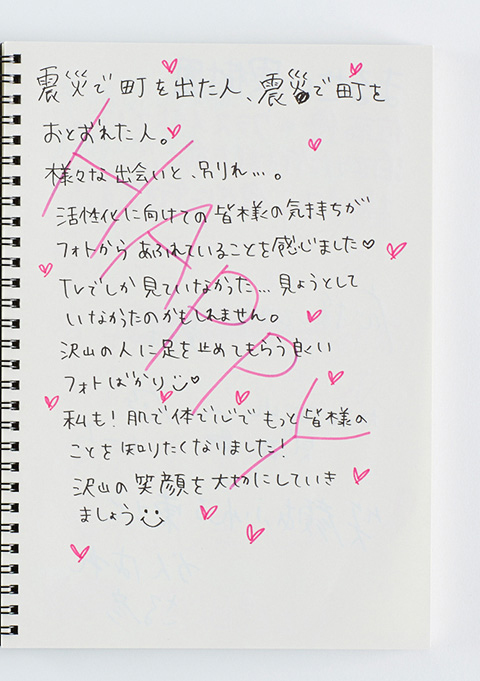 震災で町を出た人、震災で町を
おとずれた人。
様々な出会いと、別れ…。
活性化に向けての皆様の気持ちが
フォトからあふれていることを感じました♡
TVでしか見ていなかった…見ようとして
いなかったのかもしれません。
沢山の人に足を止めてもらう良い
フォトばかり♡
私も！肌で体で心でもっと皆様の
ことを知りたくなりました！
沢山の笑顔を大切にしていき
ましょう
HAPPY